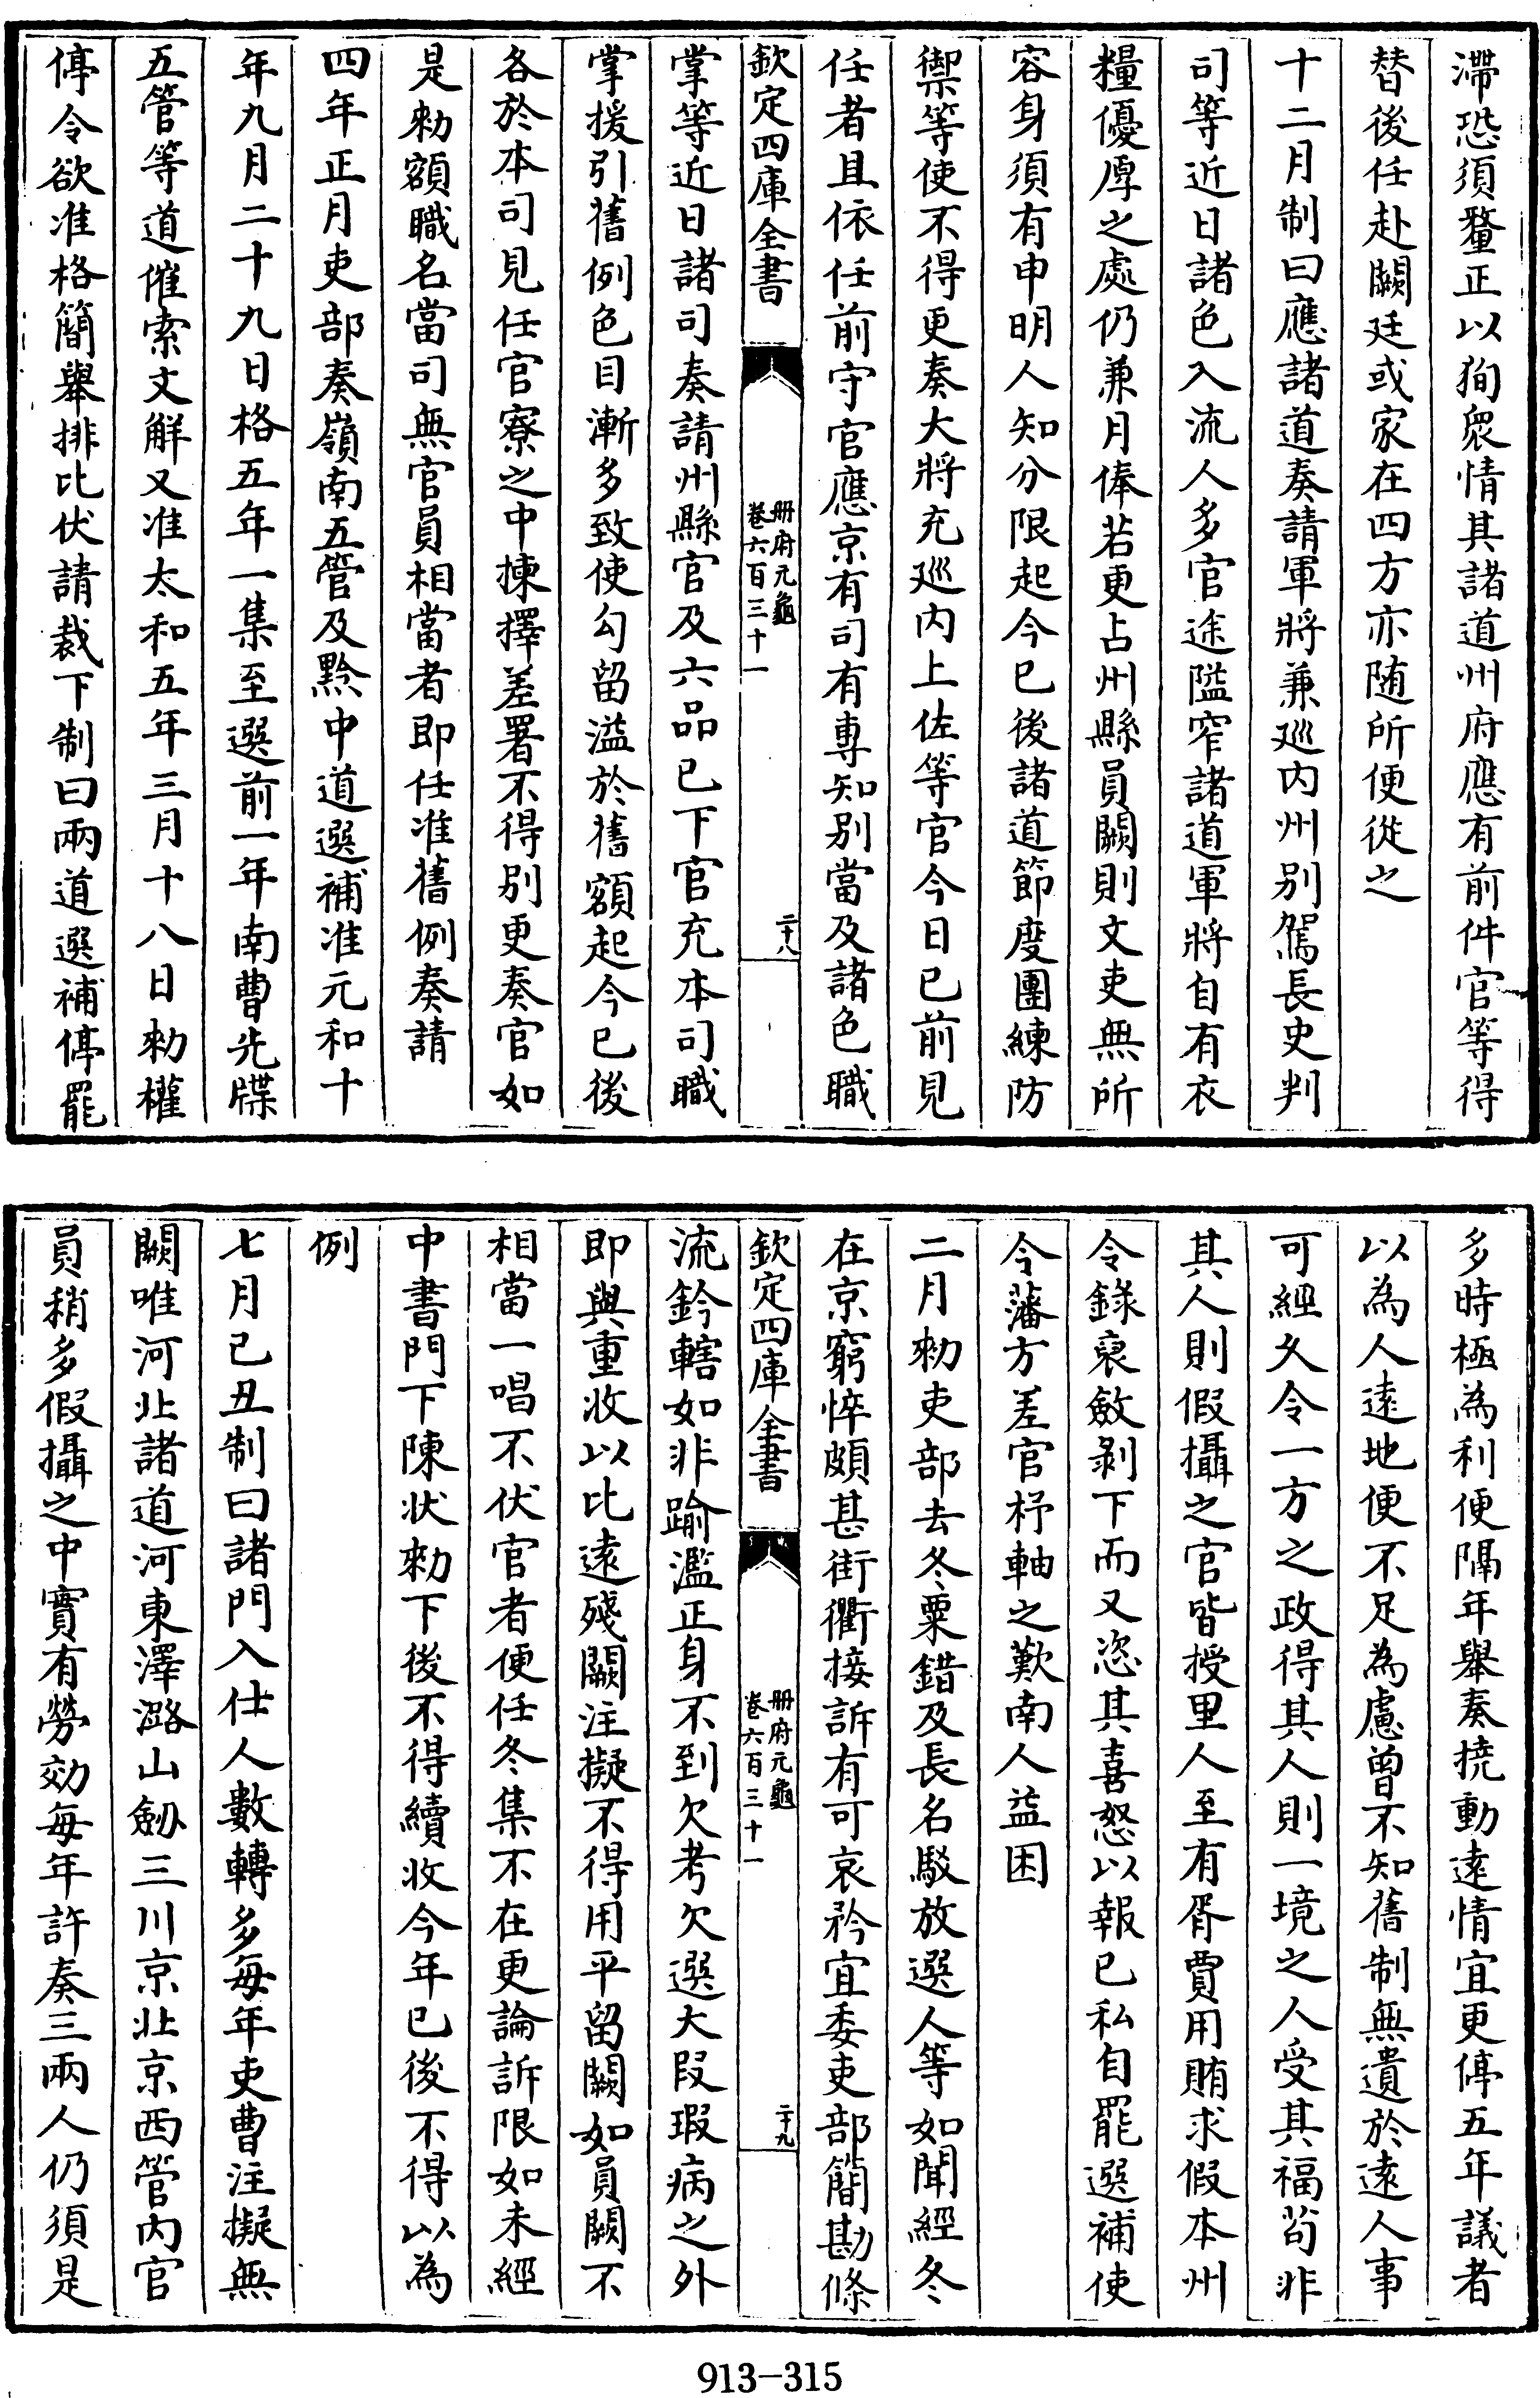 滯恐須釐正以狥衆情其諸道州府應有前件官等得
替後任赴闕廷或家在四方亦随所便從之
十二月制曰應諸道奏請軍將兼廵内州别駕長史判
司等近日諸色入流人多官途隘窄諸道軍將自有衣
糧優厚之處仍兼月俸若更占州縣員闕則文吏無所
容身須有申明人知分限起今已後諸道節度團練防
禦等使不得更奏大將充廵内上佐等官今日已前見
任者且依任前守官應京有司有專知别當及諸色職
欽定四庫全書
册府元龜
卷六百三十一
二十八
掌等近日諸司奏請州縣官及六品已下官充本司職
掌援引舊例色目漸多致使勾留溢於舊額起今已後
各於本司見任官寮之中揀擇差署不得别更奏官如
是勑額職名當司無官員相當者即任准舊例奏請
四年正月吏部奏嶺南五管及黔中道選補准元和十
年九月二十九日格五年一集至選前一年南曹先牒
五管等道催索文解又准太和五年三月十八日勑權
停今欲准格簡舉排比伏請裁下制曰兩道選補停罷
多時極為利便隔年舉奏撓動逺情宜更停五年議者
以為人逺地便不足為慮曾不知舊制無遺於逺人事
可經久令一方之政得其人則一境之人受其福茍非
其人則假攝之官皆授里人至有胥賈用賄求假本州
令錄裒斂剥下而又恣其喜怒以報已私自罷選補使
令藩方差官杼軸之歎南人益困
二月勑吏部去冬粟錯及長名駁放選人等如聞經冬
在京窮悴頗甚街衢接訴有可哀矜宜委吏部簡勘條
欽定四庫全書
册府元龜
卷六百三十一
二十九
流鈐轄如非踰濫正身不到欠考欠選大叚瑕病之外
即與重收以比逺殘闕注擬不得用平留闕如員闕不
相當一唱不伏官者便任冬集不在更論訴限如未經
中書門下陳狀勑下後不得續收今年已後不得以為
例
七月己丑制曰諸門入仕人數轉多每年吏曹注擬無
闕唯河北諸道河東澤潞山劔三川京北京西管内官
員稍多假攝之中實有勞効每年許奏三兩人仍須是
913-315